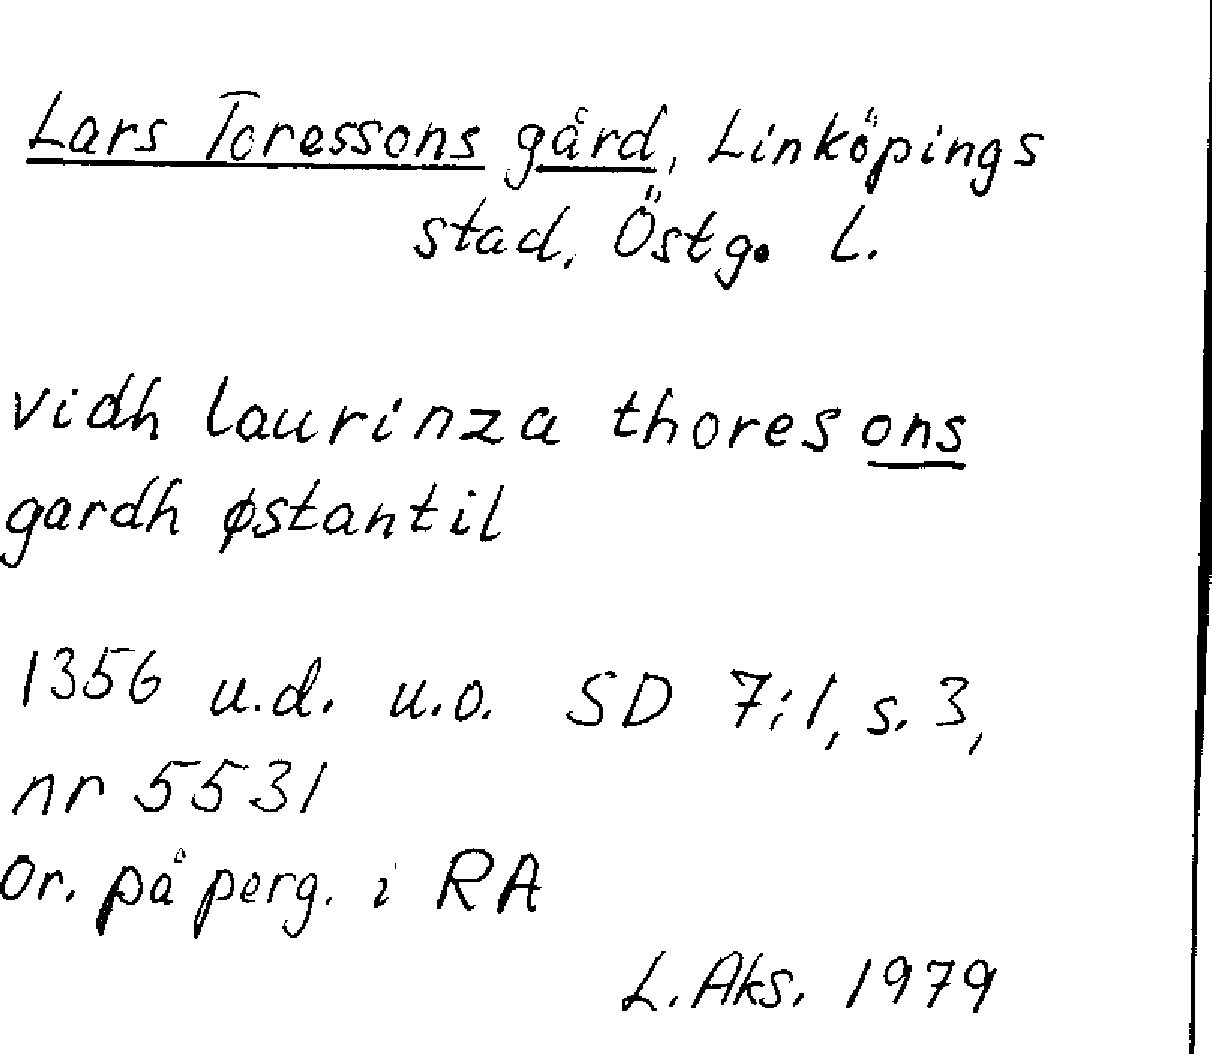 Lars Toressons gård, Linköpings
stad, Östg. L.
vidh laurinza thoresons
gardh østantil
1356 u.d. u.o. SD 7:1, s. 3,
nr 5531
Or. på perg. i RA
L. Aks. 1979